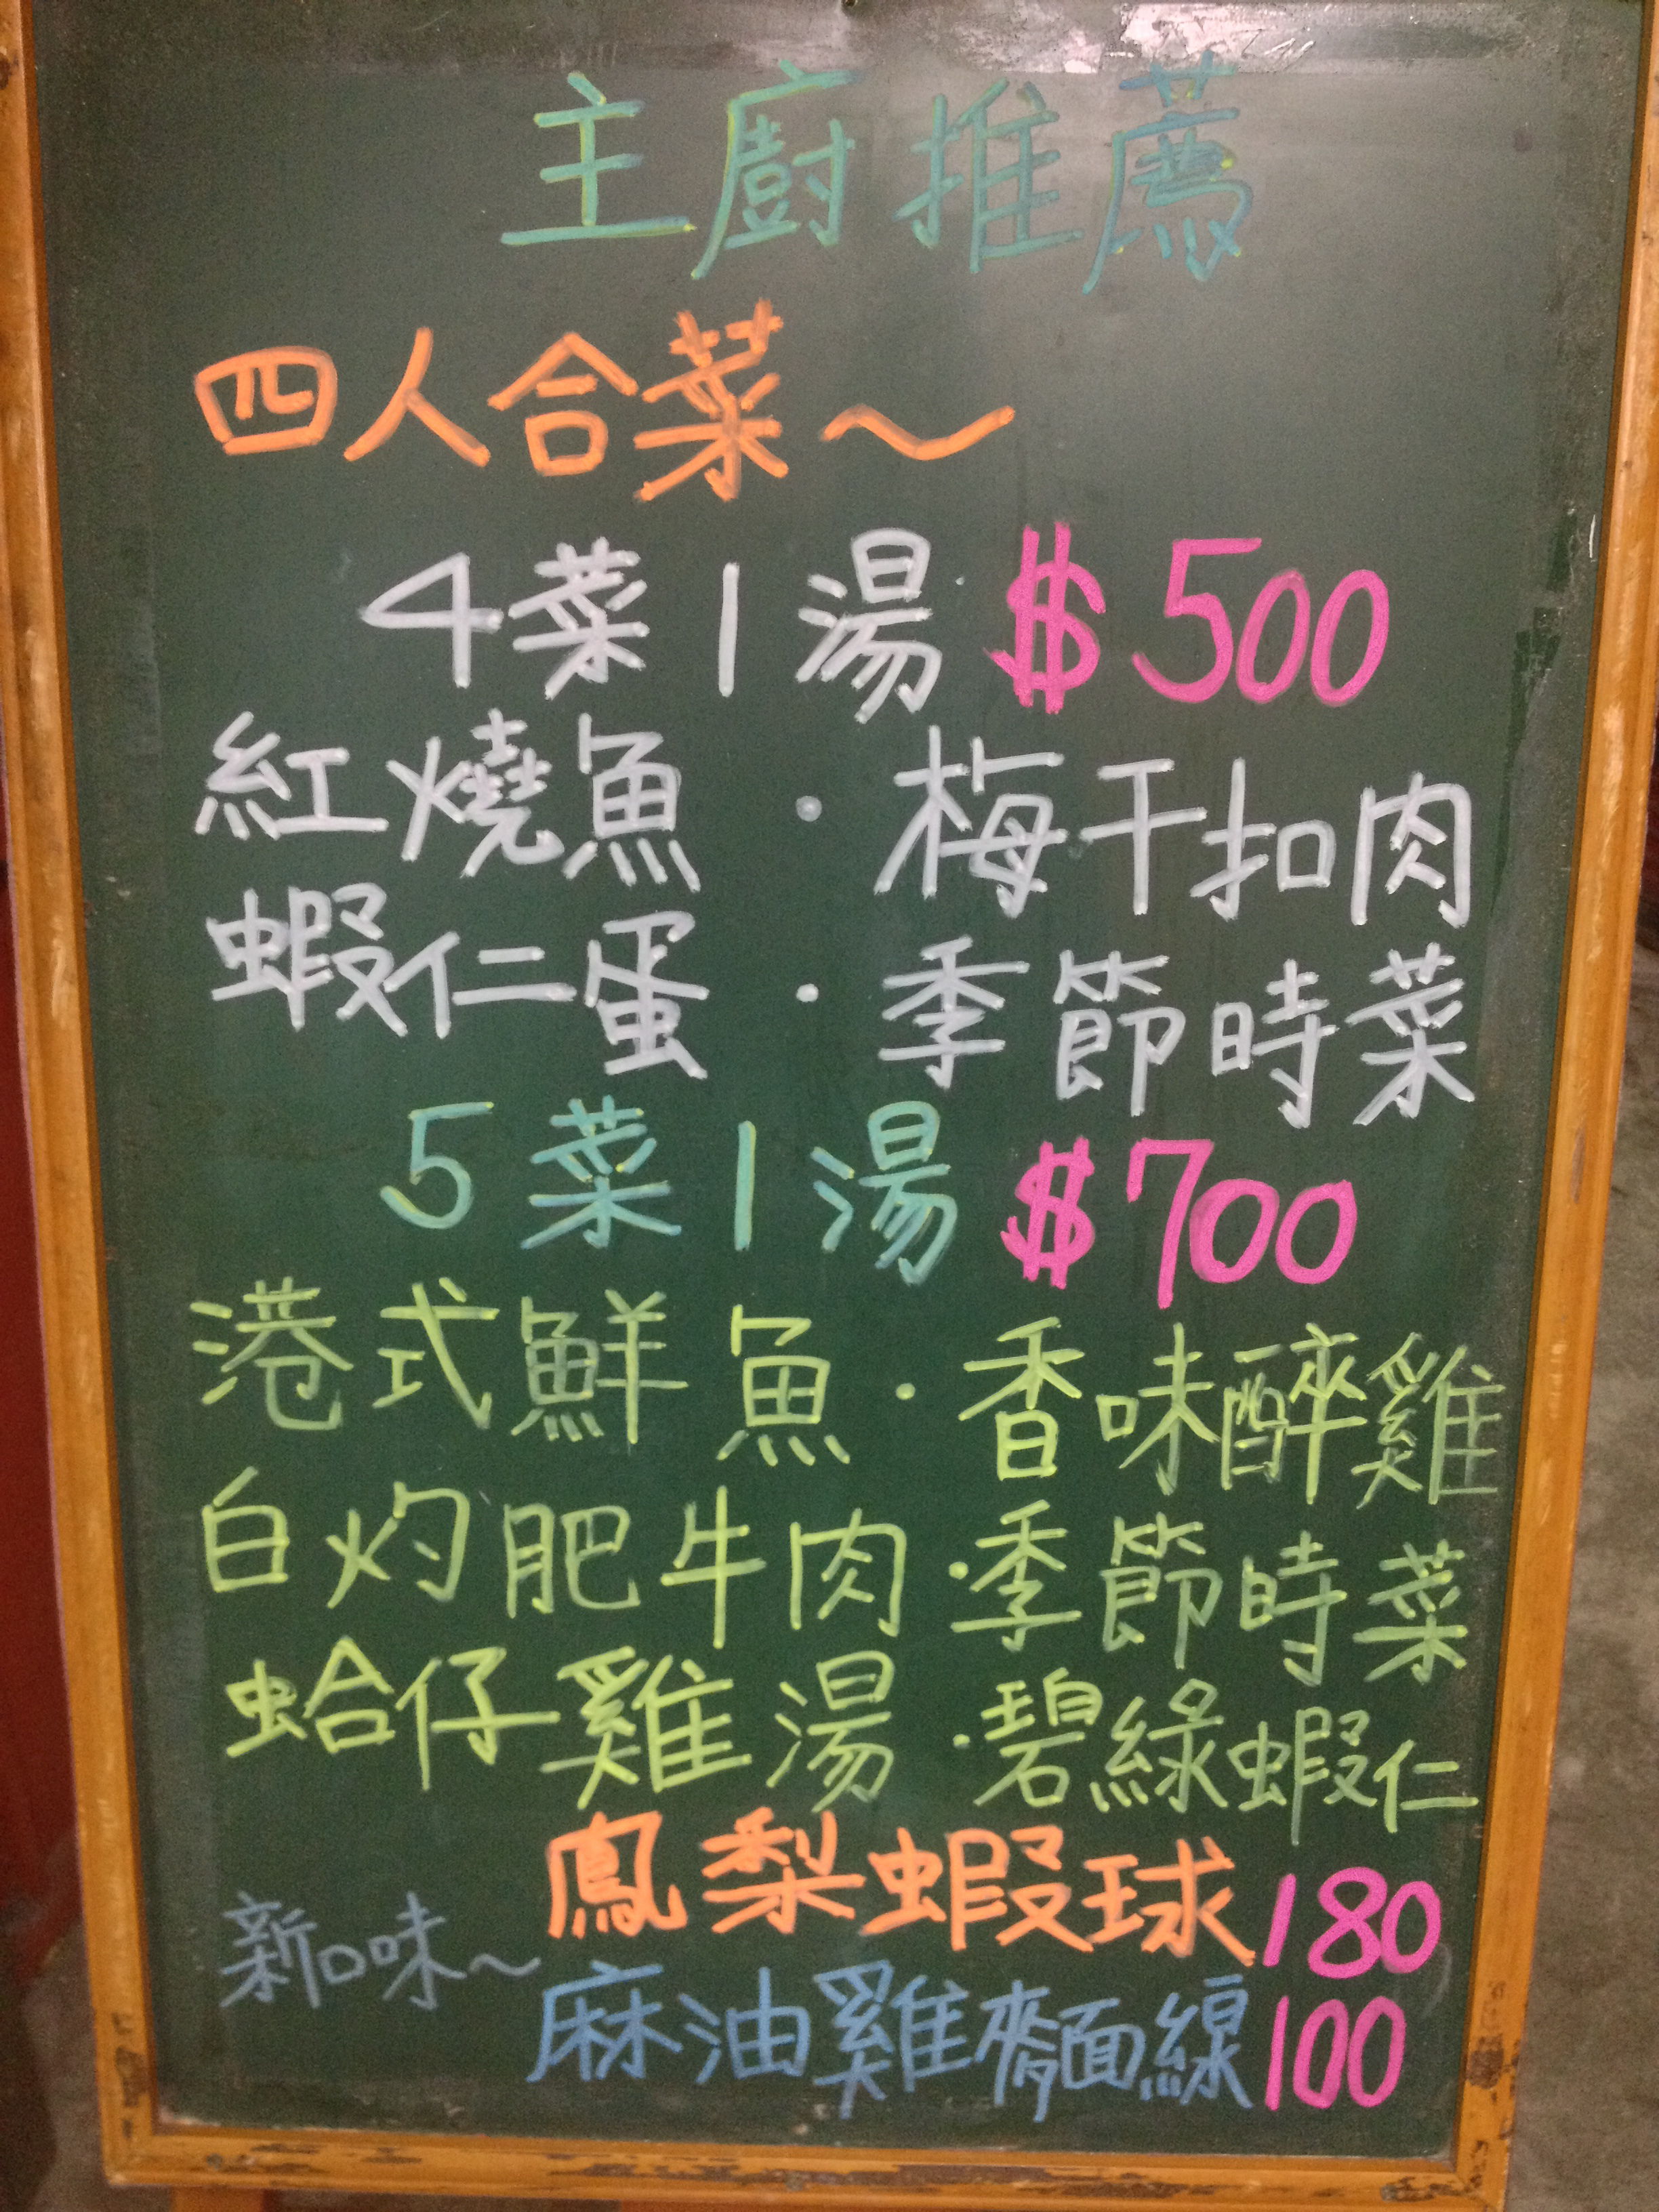 主廚推薦
四人合菜～
4菜1湯 $500
紅燒魚・梅干扣肉
蝦仁蛋・季節時菜
5菜1湯 $700
港式鮮魚・香味醉雞
白灼肥牛肉・季節時菜
蛤仔雞湯・碧綠蝦仁
鳳梨蝦球180
新口味～
麻油雞麵線100